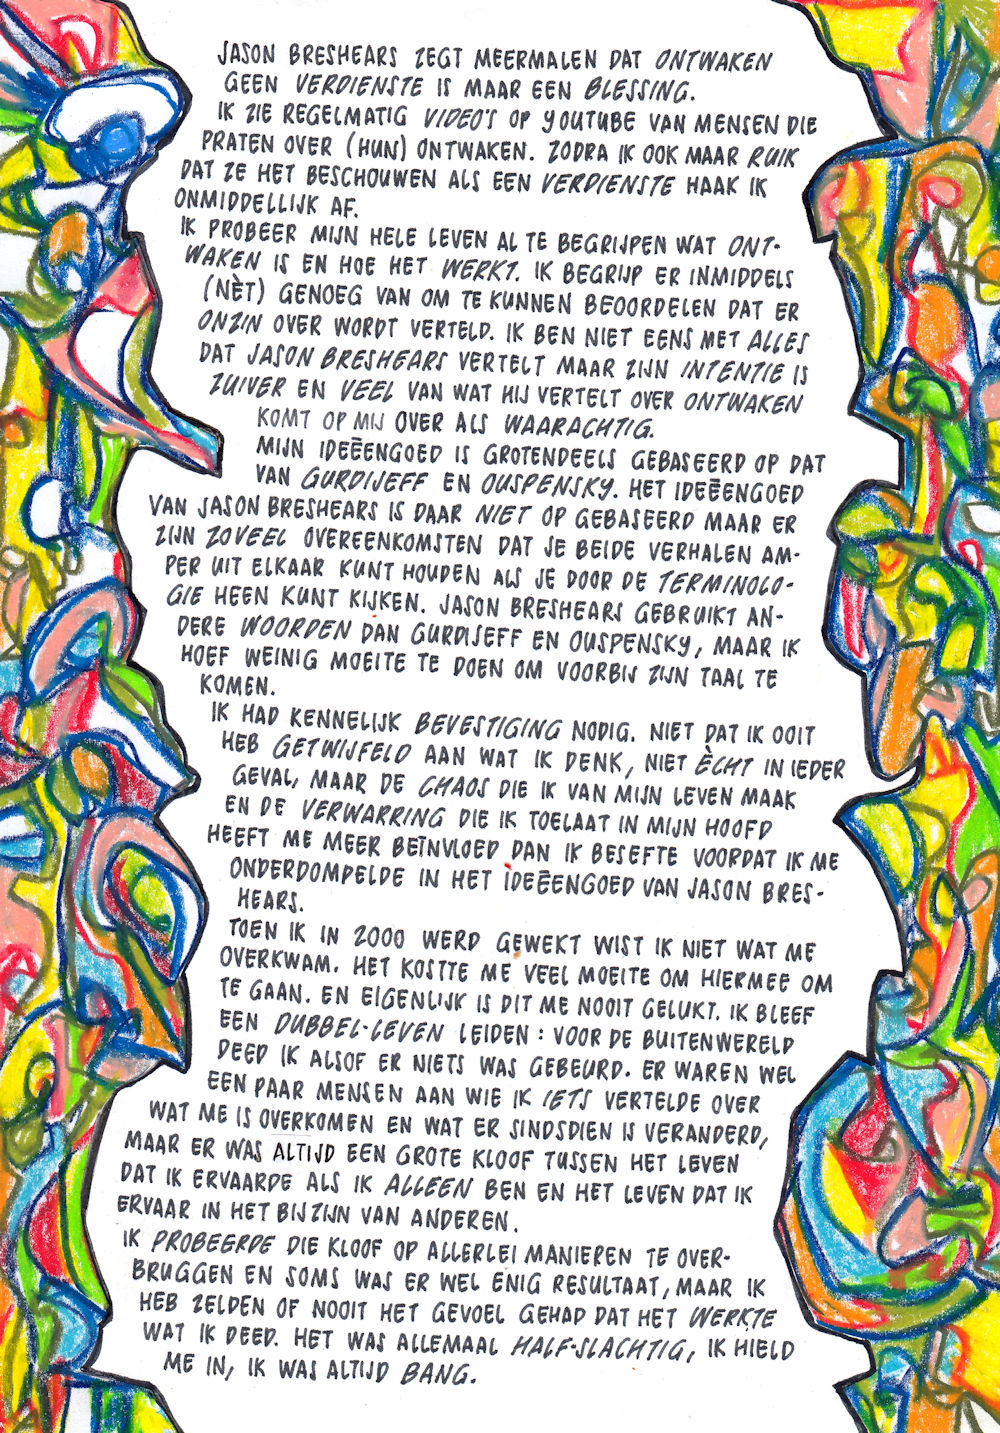 JASON BRESHEARS ZEGT MEERMALEN DAT ONTWAKEN
GEEN VERDIENSTE IS MAAR EEN BLESSING.
IK ZIE REGELMATIG VIDEO'S OP YOUTUBE VAN MENSEN DIE
PRATEN OVER (HUN) ONTWAKEN. ZODRA IK OOK MAAR RUIK
DAT ZE HET BESCHOUWEN ALS EEN VERDIENSTE HAAK IK
ONMIDDELLIJK AF.
IK PROBEER MIJN HELE LEVEN AL TE BEGRIJPEN WAT ONT-
WAKEN IS EN HOE HET WERKT. IK BEGRIJP ER INMIDDELS
(NÈT) GENOEG VAN OM TE KUNNEN BEOORDELEN DAT ER
ONZIN OVER WORDT VERTELD. IK BEN NIET EENS MET ALLES
DAT JASON BRESHEARS VERTELT MAAR ZIJN INTENTIE IS
ZUIVER EN VEEL VAN WAT HIJ VERTELT OVER ONTWAKEN
KOMT OP MIJ OVER ALS WAARACHTIG.
MIJN IDEËENGOED IS GROTENDEELS GEBASEERD OP DAT
VAN GURDIJEFF EN OUSPENSKY. HET IDEËENGOED
VAN JASON BRESHEARS IS DAAR NIET OP GEBASEERD MAAR ER
ZIJN ZOVEEL OVEREENKOMSTEN DAT JE BEIDE VERHALEN AM-
PER UIT ELKAAR KUNT HOUDEN ALS JE DOOR DE TERMINOLO-
GIE HEEN KUNT KIJKEN. JASON BRESHEARS GEBRUIKT AN-
DERE WOORDEN DAN GURDIJEFF EN OUSPENSKY, MAAR IK
HOEF WEINIG MOEITE TE DOEN OM VOORBIJ ZIJN TAAL TE
KOMEN.
IK HAD KENNELIJK BEVESTIGING NODIG. NIET DAT IK OOIT
HEB GETWIJFELD AAN WAT IK DENK, NIET ÈCHT IN IEDER
GEVAL, MAAR DE CHAOS DIE IK VAN MIJN LEVEN MAAK
EN DE VERWARRING DIE IK TOELAAT IN MIJN HOOFD
HEEFT ME MEER BEÏNVLOED DAN IK BESEFTE VOORDAT IK ME
ONDERDOMPELDE IN HET IDEËENGOED VAN JASON BRES-
HEARS.
TOEN IK IN 2000 WERD GEWEKT WIST IK NIET WAT ME
OVERKWAM. HET KOSTTE ME VEEL MOEITE OM HIERMEE OM
TE GAAN. EN EIGENLIJK IS DIT ME NOOIT GELUKT. IK BLEEF
EEN DUBBEL-LEVEN LEIDEN: VOOR DE BUITENWERELD
DEED IK ALSOF ER NIETS WAS GEBEURD. ER WAREN WEL
EEN PAAR MENSEN AAN WIE IK IETS VERTELDE OVER
WAT ME IS OVERKOMEN EN WAT ER SINDSDIEN IS VERANDERD,
MAAR ER WAS ALTIJD EEN GROTE KLOOF TUSSEN HET LEVEN
DAT IK ERVAARDE ALS IK ALLEEN BEN EN HET LEVEN DAT IK
ERVAAR IN HET BIJZIJN VAN ANDEREN.
IK PROBEERDE DIE KLOOF OP ALLERLEI MANIEREN TE OVER-
BRUGGEN EN SOMS WAS ER WEL ENIG RESULTAAT, MAAR IK
HEB ZELDEN OF NOOIT HET GEVOEL GEHAD DAT HET WERKTE
WAT IK DEED. HET WAS ALLEMAAL HALF-SLACHTIG, IK HIELD
ME IN, IK WAS ALTIJD BANG.